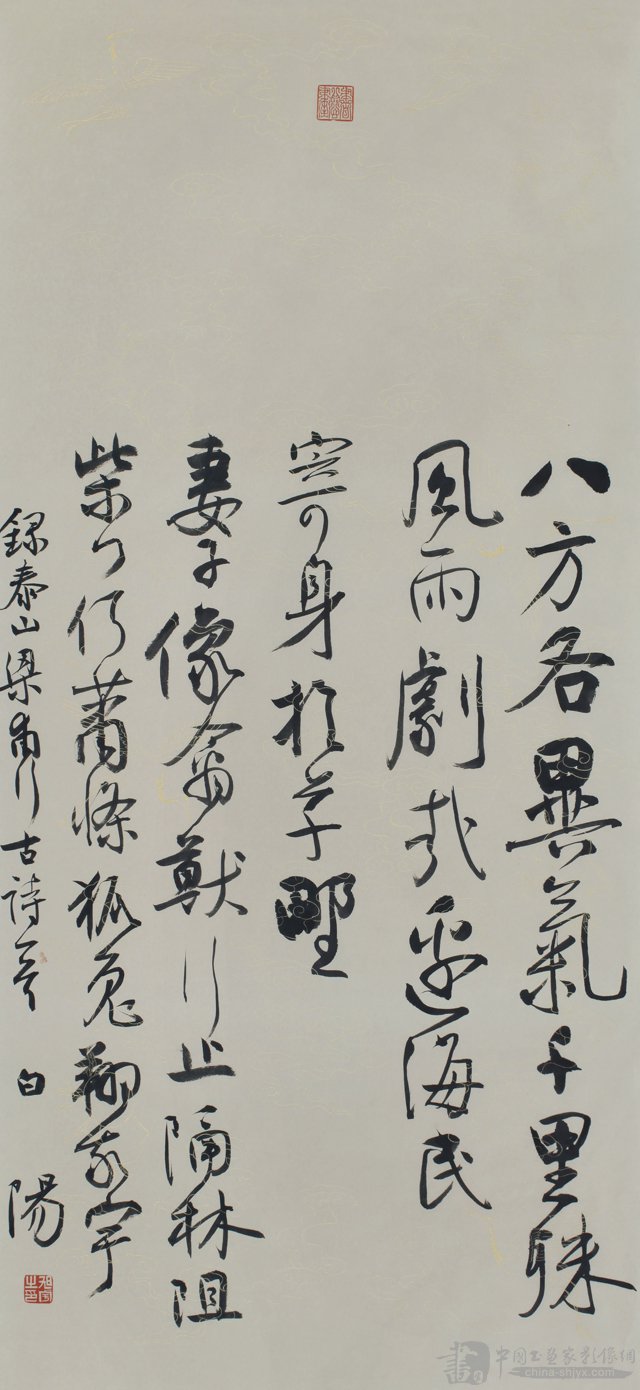 八方各異氣千里殊
風雨劇哉邊海民
寄身於草野
妻子像禽獸行止隔林阻
柴門何蕭條狐兔翔我宇
錄泰山梁甫行古詩一首 白陽
旭宇之印
中國書畫家影像網
china-shjyx.com